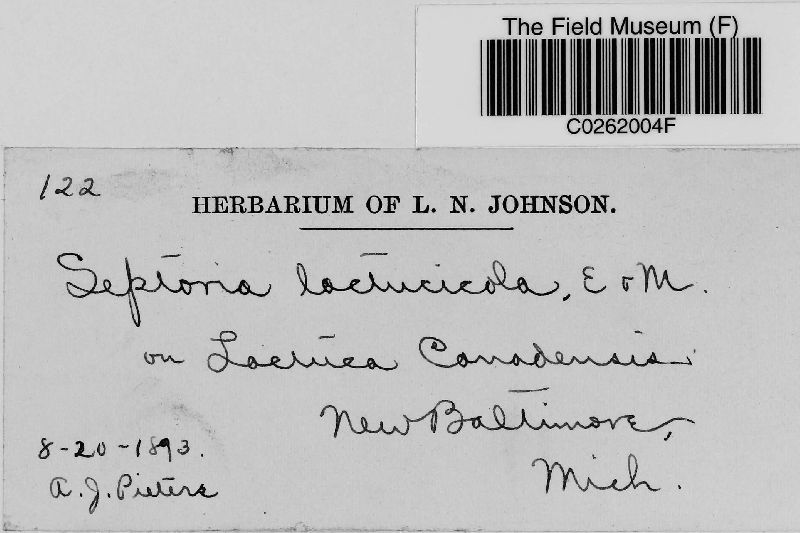 The Field Museum (F)
C0262004F
122
HERBARIUM OF L. N. JOHNSON.
Septoria lactucicola, E & M.
on Lactuca Canadensis
New Baltimore,
Mich.
8-20-1893.
A. J. Pieters